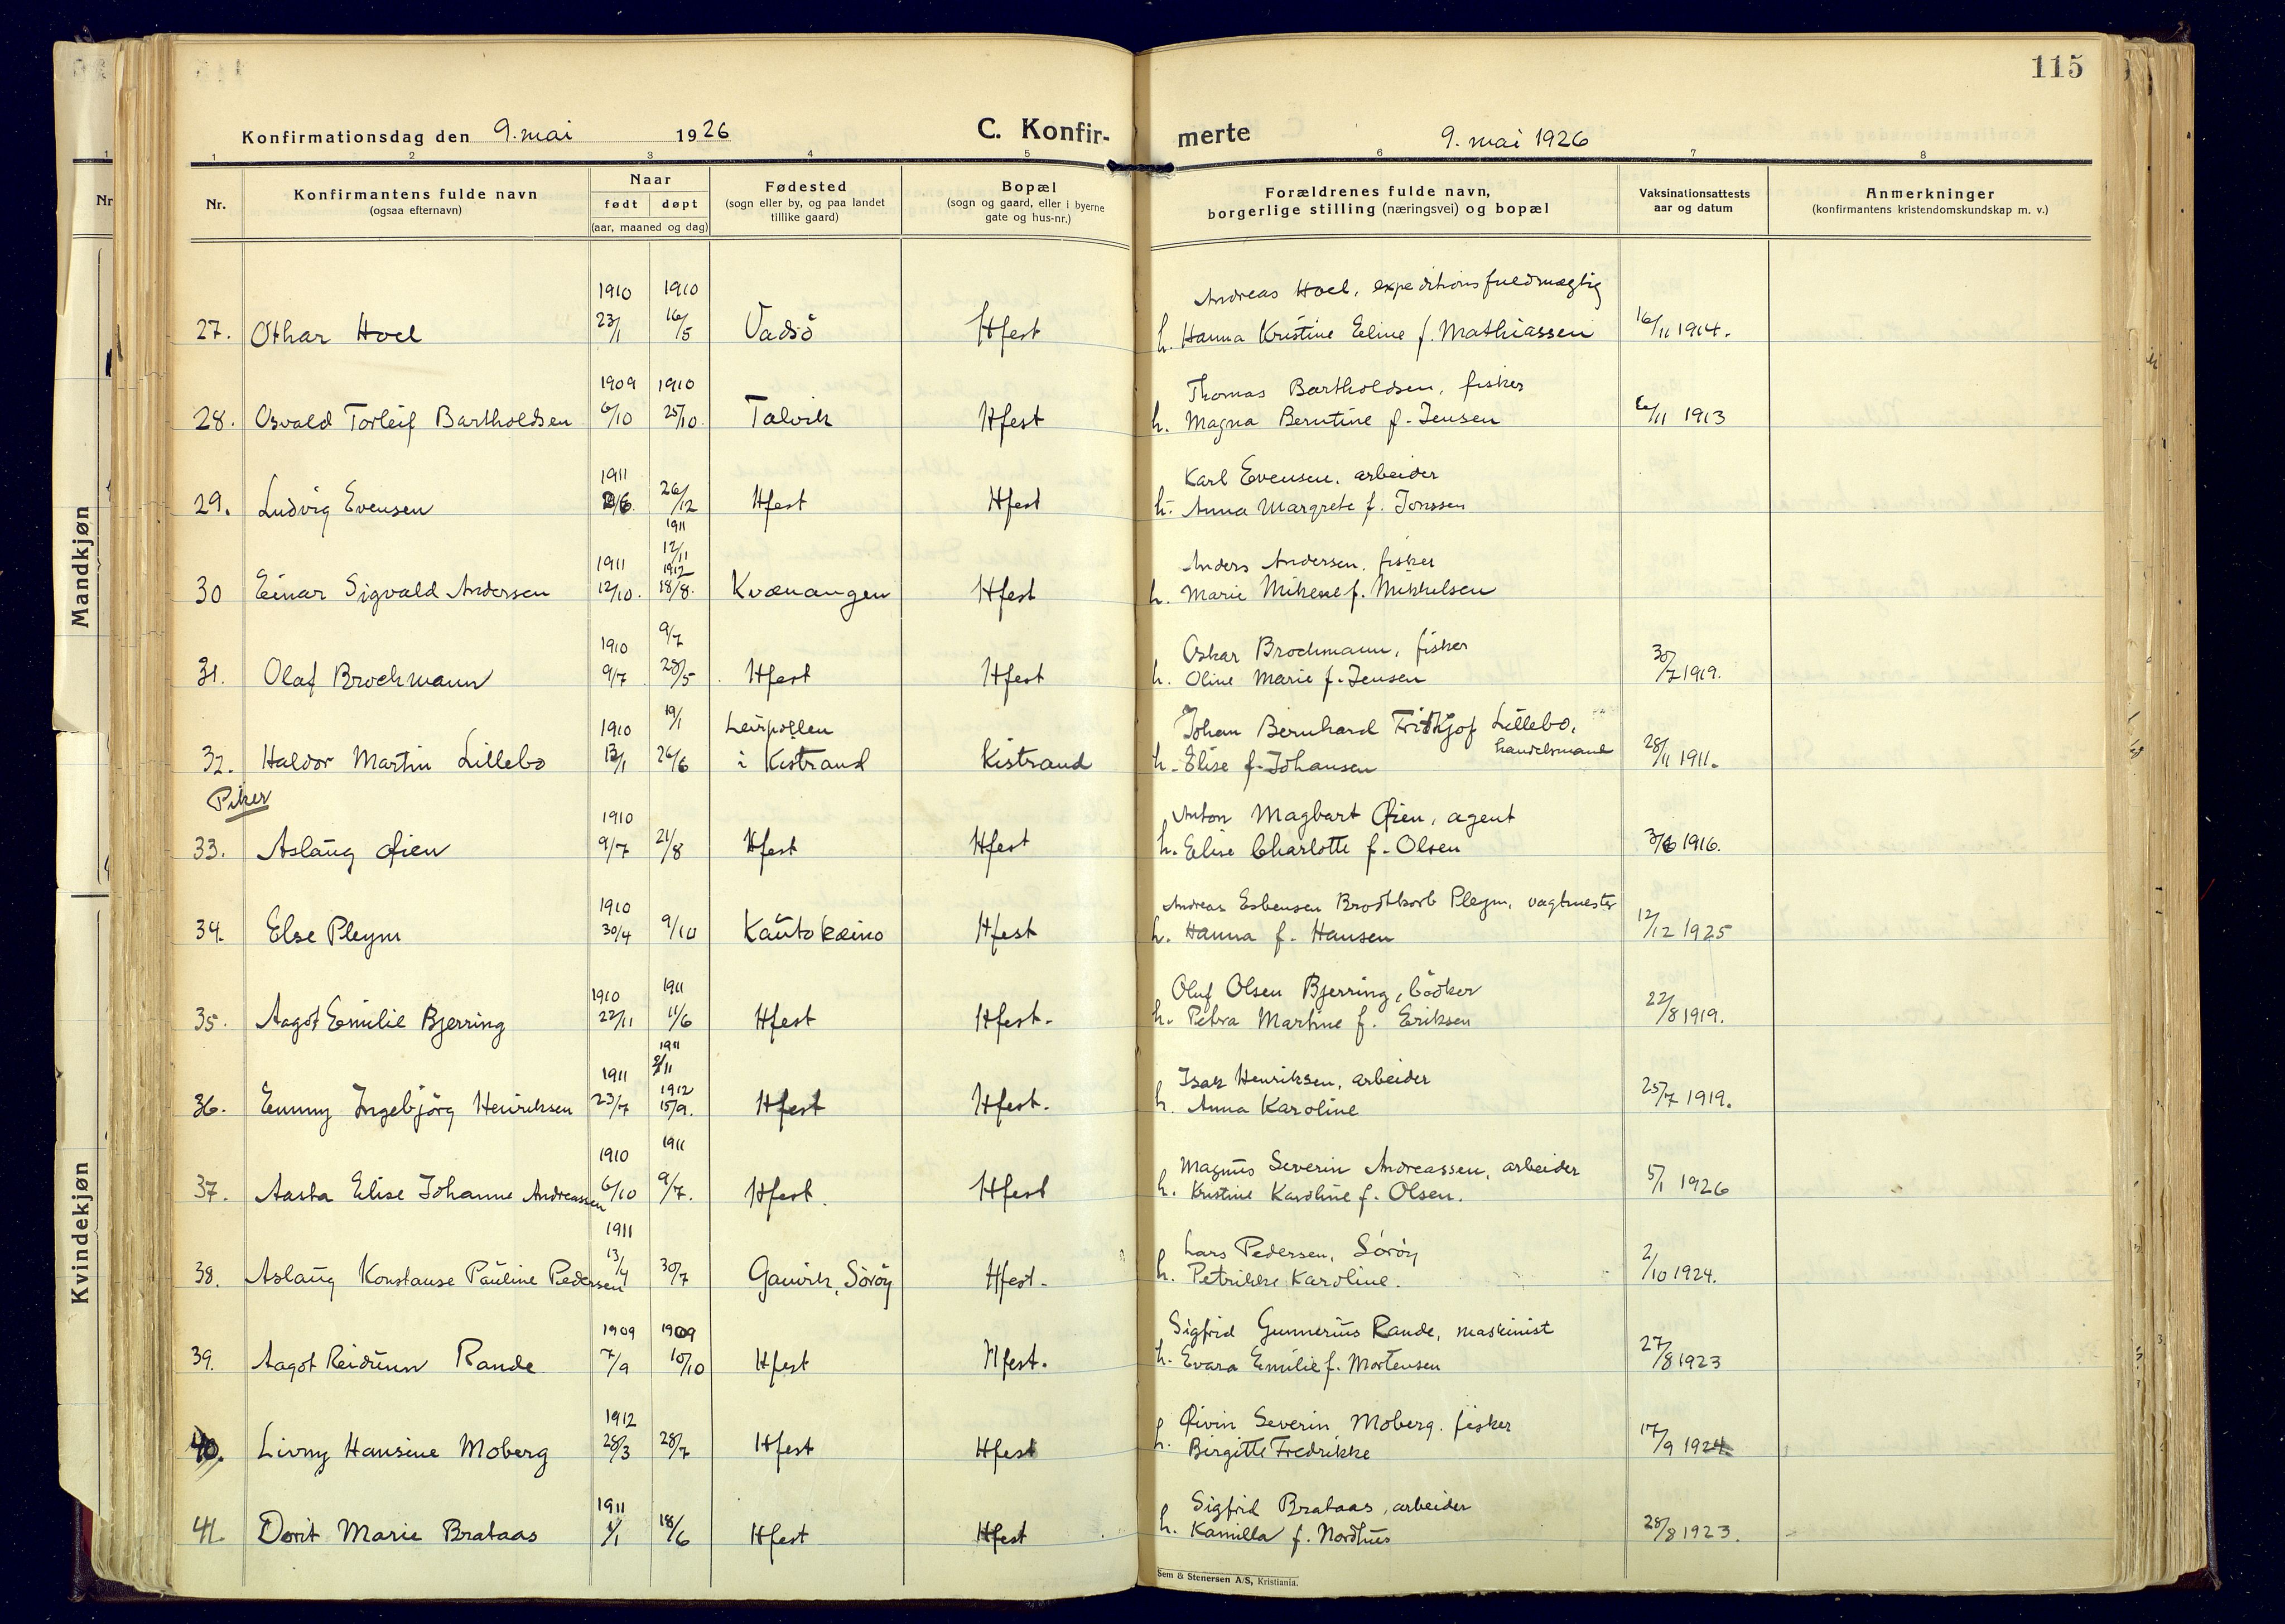 115
Konfirmationsdag den 9. mai 1926 C. Konfir- merte 9. mai 1926
1 2 3 4 5 6 7 8
Nr. Konfirmantens fulde navn (ogsaa efternavn) Naar født døpt (aar, maaned og dag) Fødested (sogn eller by, og paa landet tillike gaard) Bopæl (sogn og gaard, eller i byerne gate og hus-nr.) Forældrenes fulde navn, borgerlige stilling (næringsvei) og bopæl Vaksinationsattests aar og datum Anmerkninger (konfirmantens kristendomskundskap m. v.)
Mandkjøn
1910 1910 Andreas Hoel, expeditionsfuldmægtig
27. Othar Hoel 23/1 16/5 Vadsö Hfest h. Hanna Kristine Eline f. Mathiassen 16/11 1914.
1909 1910 Thomas Bartholdsen, fisker
28. Osvald Torleif Bartholdsen 6/10 25/10. Talvik Hfest h. Magna Berntine f. Jensen 6/11 1913
1911 Karl Evensen, arbeider
29. Ludvig Evensen 26/12 1911 Hfest Hfest h. Anna Margrete f. Jonssen
1911 12/11 1912 Anders Andersen, fisker
30 Einar Sigvald Andersen 12/10. 18/8. Kvænangen Hfest h. Marie Mikene f. Mikkelsen
1910 9/7 Oskar Brochmann, fisker
31. Olaf Brochmann 9/7 28/5 Hfest Hfest h. Oline Marie f. Jensen 30/7 1919.
1910 19/1 Leirpollen Johan Bernhard Fridtjof Lillebo, handelsmand
32. Haldor Martin Lillebo 13/1 26/6 i Kistrand Kistrand h. Elise f. Johansen 28/11 1911.
Piker
Kvindekjøn
1910 Anton Magbart Øien, agent
33. Aslaug Øien 9/7 21/8 Hfest Hfest h. Elise Charlotte f. Olsen 3/6 1916.
1910 Andreas Esbensen Brodtkorb Pleym, vagtmester
34. Else Pleym 30/4 9/10 Kautokeino Hfest h. Hanna f. Hansen 12/12 1925
1910 1911 Oluf Olsen Bjerring, bödker
35. Aagot Emilie Bjerring 22/11 11/6 Hfest Hfest. h. Petra Martine f. Eriksen 22/8 1919.
1911 1911 2/11 1912 Isak Henriksen, arbeider
36. Emmy Ingebjörg Henriksen 23/7 15/9. Hfest Hfest. h. Anna Karoline 25/7 1919.
1910 1911 Magnus Severin Andreassen, arbeider
37. Aasta Elise Johanne Andreassen 6/10 9/7. Hfest. Hfest h. Kristine Karoline f. Olsen. 5/1 1926
1911 Lars Pedersen, Söröy
38. Aslaug Konstanse Pauline Pedersen 13/4 30/7 Gamvik, Söröy Hfest. h. Petrikke Karoline. 2/10 1924.
1909 1909 Sigfrid Gunnerius Rande, maskinist
39. Aagot Reidunn Rande 7/9 10/10 Hfest Hfest. h. Evara Emilie f. Mortensen 27/8 1923
1912 Øivin Severin Moberg, fisker
40. Livny Hansine Moberg 28/3 28/7 Hfest Hfest h. Birgitte Fredrikke 17/9 1924.
1911 Sigfrid Brataas, arbeider
41. Dorit Marie Brataas 1/1 18/6 Hfest Hfest h. Kamilla f. Nordhus 28/8 1923.
Sem & Stenersen A/S, Kristiania.